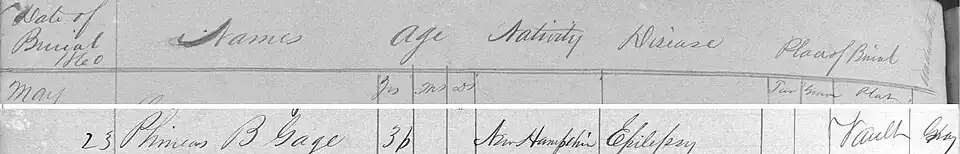 Date of Burial 1860 Names Age Nativity Disease Place of Burial
May Yrs Ms Ds Tier Grave Plat
23 Phineas B Gage 36 New Hampshire Epilepsy Vault Gray